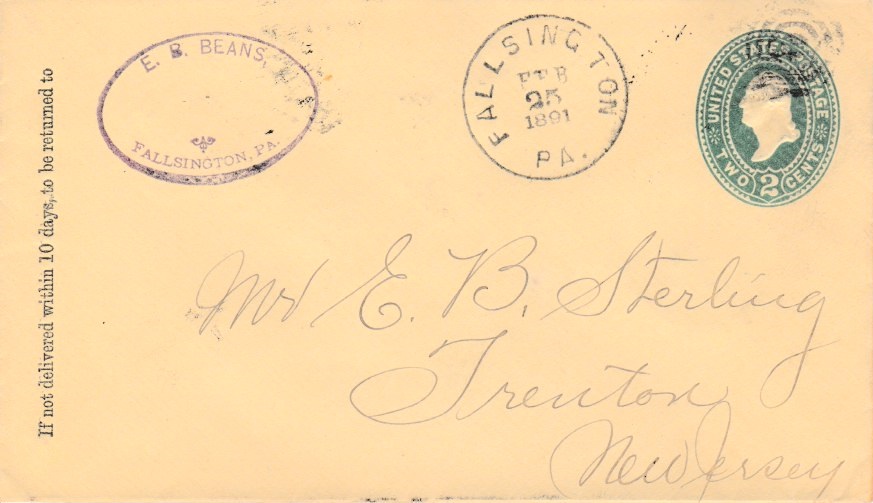 If not delivered within 10 days, to be returned to
E. B. BEANS,
FALLSINGTON, PA.
FALLSINGTON
FEB
25
1891
PA.
UNITED STATES POSTAGE
TWO 2 CENTS
Mr E. B. Sterling
Trenton
New Jersey